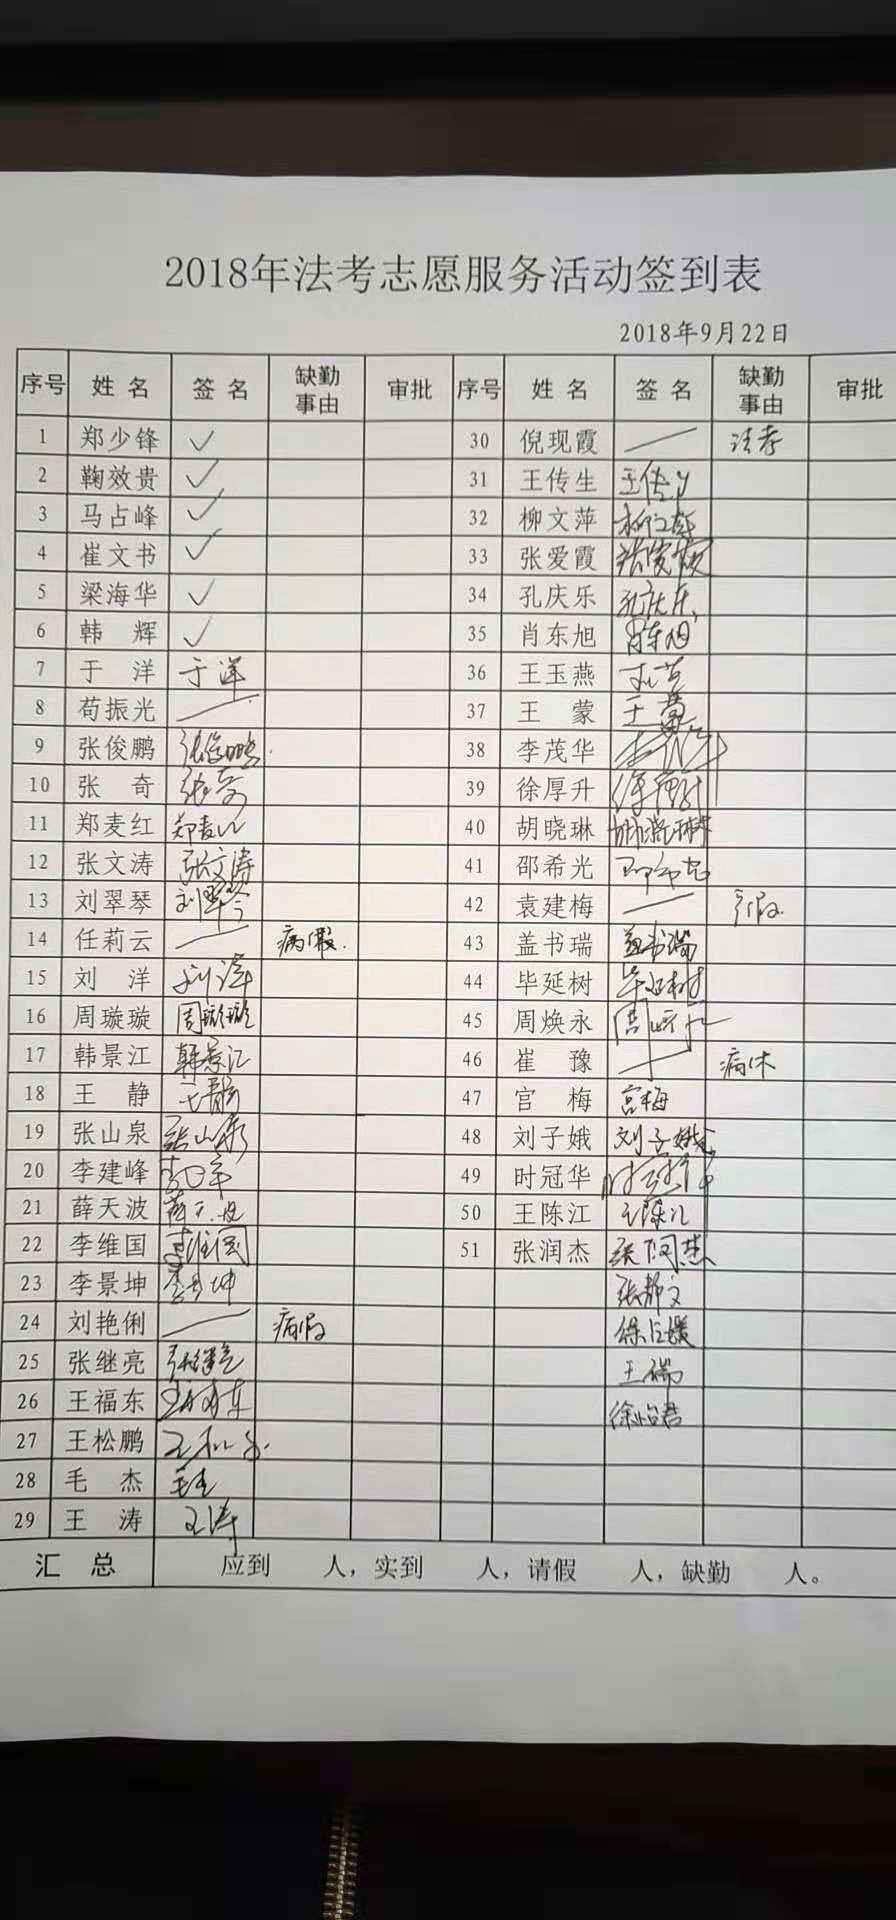 2018年法考志愿服务活动签到表
2018年9月22日
序号 姓名 签名 缺勤事由 审批 序号 姓名 签名 缺勤事由 审批
1 郑少锋 ✓ 30 倪现霞 — 法考
2 鞠效贵 ✓ 31 王传生 王传生
3 马占峰 ✓ 32 柳文萍 柳文萍
4 崔文书 ✓ 33 张爱霞 张爱霞
5 梁海华 ✓ 34 孔庆乐 孔庆乐
6 韩辉 ✓ 35 肖东旭 肖东旭
7 于洋 于洋 36 王玉燕
8 苟振光 — 37 王蒙 王蒙
9 张俊鹏 张俊鹏 38 李茂华 李茂华
10 张奇 张奇 39 徐厚升 徐厚升
11 郑麦红 郑麦红 40 胡晓琳 胡晓琳
12 张文涛 张文涛 41 邵希光 邵希光
13 刘翠琴 刘翠琴 42 袁建梅 —
14 任莉云 — 病假 43 盖书瑞 盖书瑞
15 刘洋 刘洋 44 毕延树 毕延树
16 周璇璇 周璇璇 45 周焕永 周焕永
17 韩景江 韩景江 46 崔豫 — 病休
18 王静 王静 47 宫梅 宫梅
19 张山泉 张山泉 48 刘子娥 刘子娥
20 李建峰 49 时冠华 时冠华
21 薛天波 薛天波 50 王陈江 王陈江
22 李维国 李维国 51 张润杰 张润杰
23 李景坤 李景坤 张静文
24 刘艳俐 — 病假
25 张继亮 张继亮 王瑞
26 王福东 王福东 徐怡君
27 王松鹏 王松鹏
28 毛杰 毛杰
29 王涛 王涛
汇总 应到 人，实到 人，请假 人，缺勤 人。